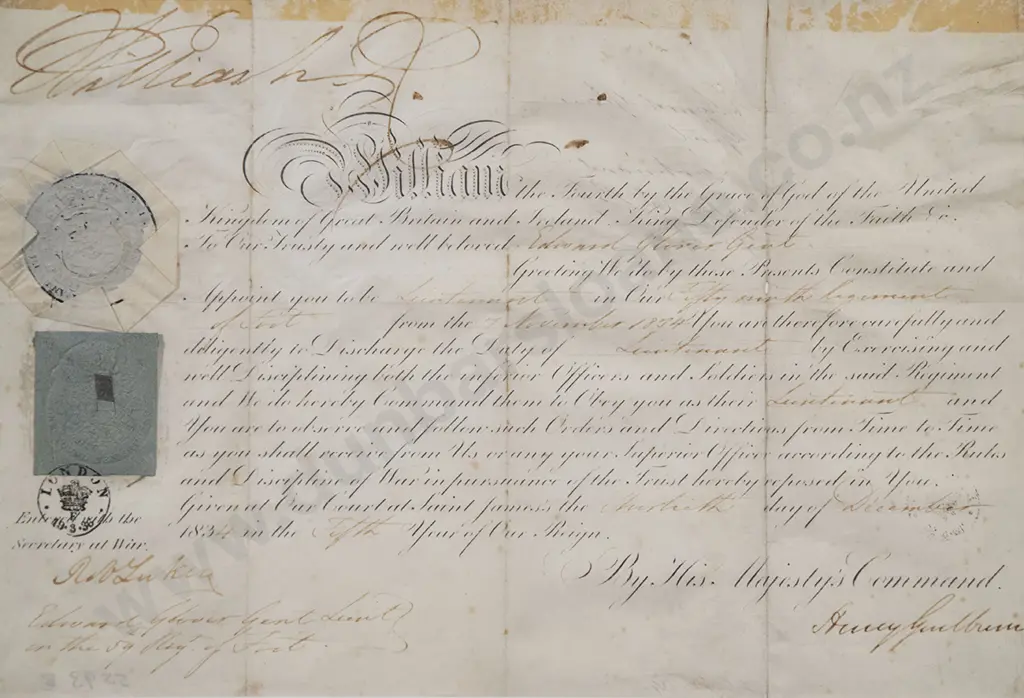 William R
William the Fourth by the Grace of God of the United
Kingdom of Great Britain and Ireland King Defender of the Faith &c.
To Our Trusty and well beloved Edward Glover Gent
Greeting We do by these Presents Constitute and
Appoint you to be Lieutenant in Our Fifty ninth Regiment
of Foot from the November 1834 You are therefore carefully and
diligently to Discharge the Duty of Lieutenant by Exercising and
well Disciplining both the inferior Officers and Soldiers in the said Regiment
and We do hereby Command them to Obey you as their Lieutenant and
You are to observe and follow such Orders and Directions from Time to Time
as you shall receive from Us or any your Superior Officer according to the Rules
and Discipline of War in pursuance of the Trust hereby reposed in You.
Given at Our Court at Saint James's the day of December
1834 in the Fifth Year of Our Reign.
By His Majesty's Command.
Henry Goulburn
LONDON
Entered with the
Secretary at War.
Edward Glover Gent Lieut
in the 59 Reg. of Foot.